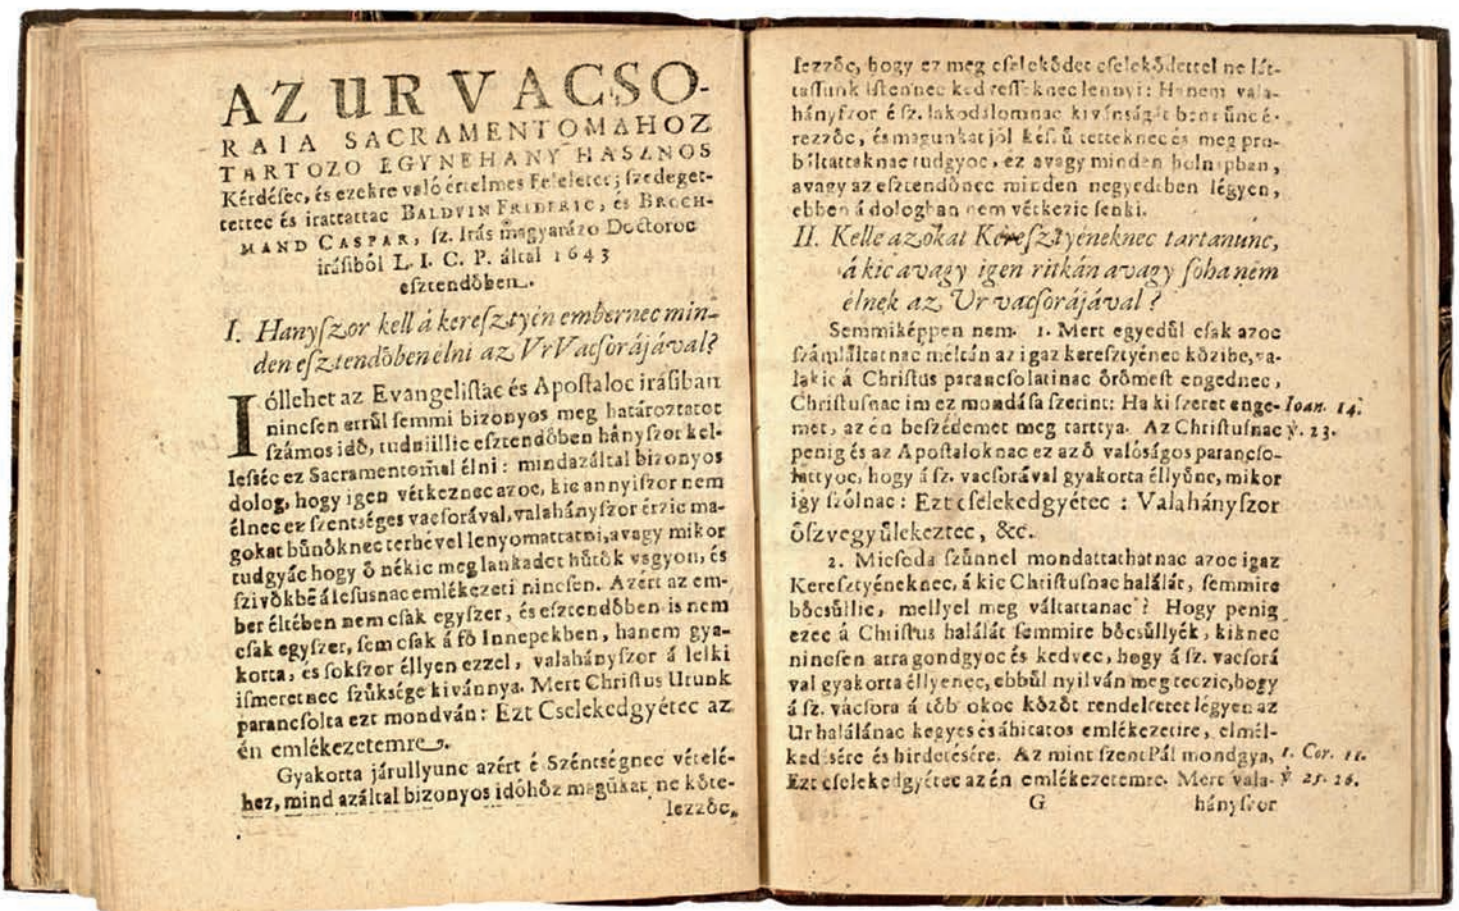 AZ UR VACSO-
RAIA SACRAMENTOMAHOZ
TARTOZO EGYNEHANY HASZNOS
Kérdésec, és ezekre való értelmes Feleletec; szedeget-
tettec és irattattac BALDVIN FRIDERIC, és BROCH-
MAND CASPAR, sz. Irás magyarázo Doctoroc
irásiból L. I. C. P. által 1643
esztendőben.
I. Hanyſzor kell á kereſztyén embernec min-
den eſztendőben élni az Vr Vacſorájával?
Ióllehet az Evangeliſtác és Apoſtaloc irásiban
nincſen errűl ſemmi bizonyos meg határoztatot
ſzámos idő, tudniillic eſztendőben hányſzor kel-
leſséc ez Sacramentom̃al élni: mindazáltal bizonyos
dolog, hogy igen vétkeznec azoc, kic annyiſzor nem
élnec ez ſzentséges vacſorával, valahányſzor érzic ma-
gokat bűnőknec terhével lenyomattatni, avagy mikor
tudgyác hogy ő nékic meglankadot hűtők vagyon, és
ſzivőkbẽ á Ieſusnac emlékezeti nincſen. Azért az em-
ber éltében nem cſak egyſzer, és eſztendőben is nem
cſak egyſzer, ſem cſak á fő Innepekben, hanem gya-
korta, és ſokſzor éllyen ezzel, valahányſzor á lelki
iſmeretnec ſzűksége kivánnya. Mert Chriſtus Urunk
parancſolta ezt mondván: Ezt Cselekedgyétec az
én emlékezetemre.
Gyakorta járullyunc azért é Széntségnec vételé-
hez, mind azáltal bizonyos időhőz magũkat ne kőte-
lezzőc,
lezzőc, hogy ez meg cſelekődet cſelekődettel ne lát-
taſſunk Iſtennec lennyi: Hanem vala-
hányſzor é ſz. lakodalomnac kivánságát
rezzőc, és magunkat jól kéſſűtetteknec és meg pro-
báltattaknac tudgyoc, ez avagy minden holnapban,
avagy az eſztendőnec minden negyedében légyen,
ebben á dologban nem vétkezic ſenki.
II. Kelle azokat Kereſztyéneknec tartanunc,
á kic avagy igen ritkán avagy ſoha nem
élnek az Ur vacſorájával?
Semmiképpen nem. 1. Mert egyedűl cſak azoc
ſzámláltatnac méltán az igaz kereſztyénec kőzibe, va-
lakic á Chriſtus parancſolatinac őrőmeſt engednec,
Chriſtuſnac im ez mondáſa ſzerint: Ha ki ſzeret enge- Ioan. 14.
met, az én beſzédemet meg tarttya. Az Chriſtuſnac ỳ. 23.
penig és az Apoſtaloknac ez az ő valóságos parancſo-
lattyoc, hogy á ſz. vacſorával gyakorta éllyűnc, mikor
igy ſzólnac: Ezt cſelekedgyétec: Valahányſzor
őſzvegyűlekeztec, &c.
2. Micſoda ſzűnnel mondattathatnac azoc igaz
Kereſztyéneknec, á kic Chriſtuſnac halálát, ſemmire
bőcsűllic, mellyel meg váltattanac? Hogy penig
ezec á Chriſtus halálát ſemmire bőcsűllyék, kiknec
nincſen arra gondgyoc és kedvec, hogy á ſz. vacſorá
val gyakorta éllyenec, ebbűl nyilván meg teczic, hogy
á ſz. vácſora á tőb okoc kőzőt rendeltetet légyen az
Ur halálánac kegyes és áhitatos emlékezetire, elmél-
kedésére és hirdetésére. Az mint ſzent Pál mondgya, 1. Cor. 11.
Ezt cſelekedgyétec az én emlékezetemre. Mert vala- ỳ 25. 26.
G hányſzor